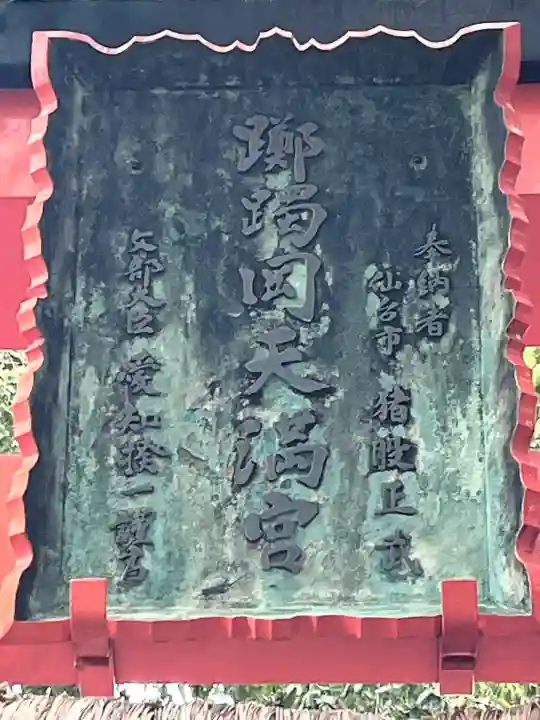 奉納者
仙台市 猪股正武
躑躅岡天満宮
文部大臣 愛知揆一謹書